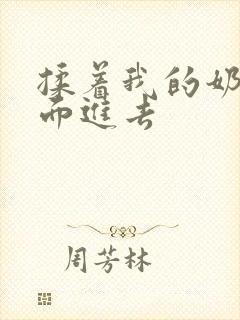 揉着我的奶
而進去
周芳林